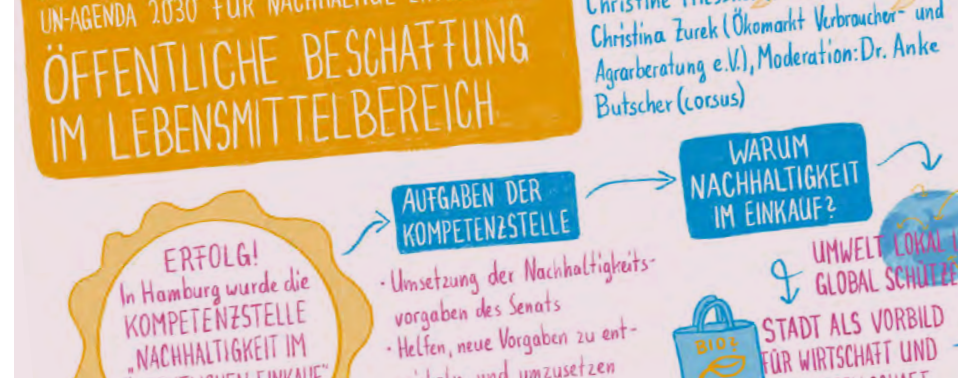 UN-AGENDA 2030 FÜR
ÖFFENTLICHE BESCHAFFUNG
IM LEBENSMITTELBEREICH
Christine
Christina Zurek (Ökomarkt Verbraucher- und
Agrarberatung e.V.), Moderation: Dr. Anke
Butscher (corsus)
ERFOLG!
In Hamburg wurde die
KOMPETENZSTELLE
„NACHHALTIGKEIT IM
AUFGABEN DER
KOMPETENZSTELLE
· Umsetzung der Nachhaltigkeits-
vorgaben des Senats
· Helfen, neue Vorgaben zu ent-
und umzusetzen
WARUM
NACHHALTIGKEIT
IM EINKAUF?
UMWELT LOKAL
GLOBAL SCHÜTZE
BIO?
STADT ALS VORBILD
FÜR WIRTSCHAFT UND